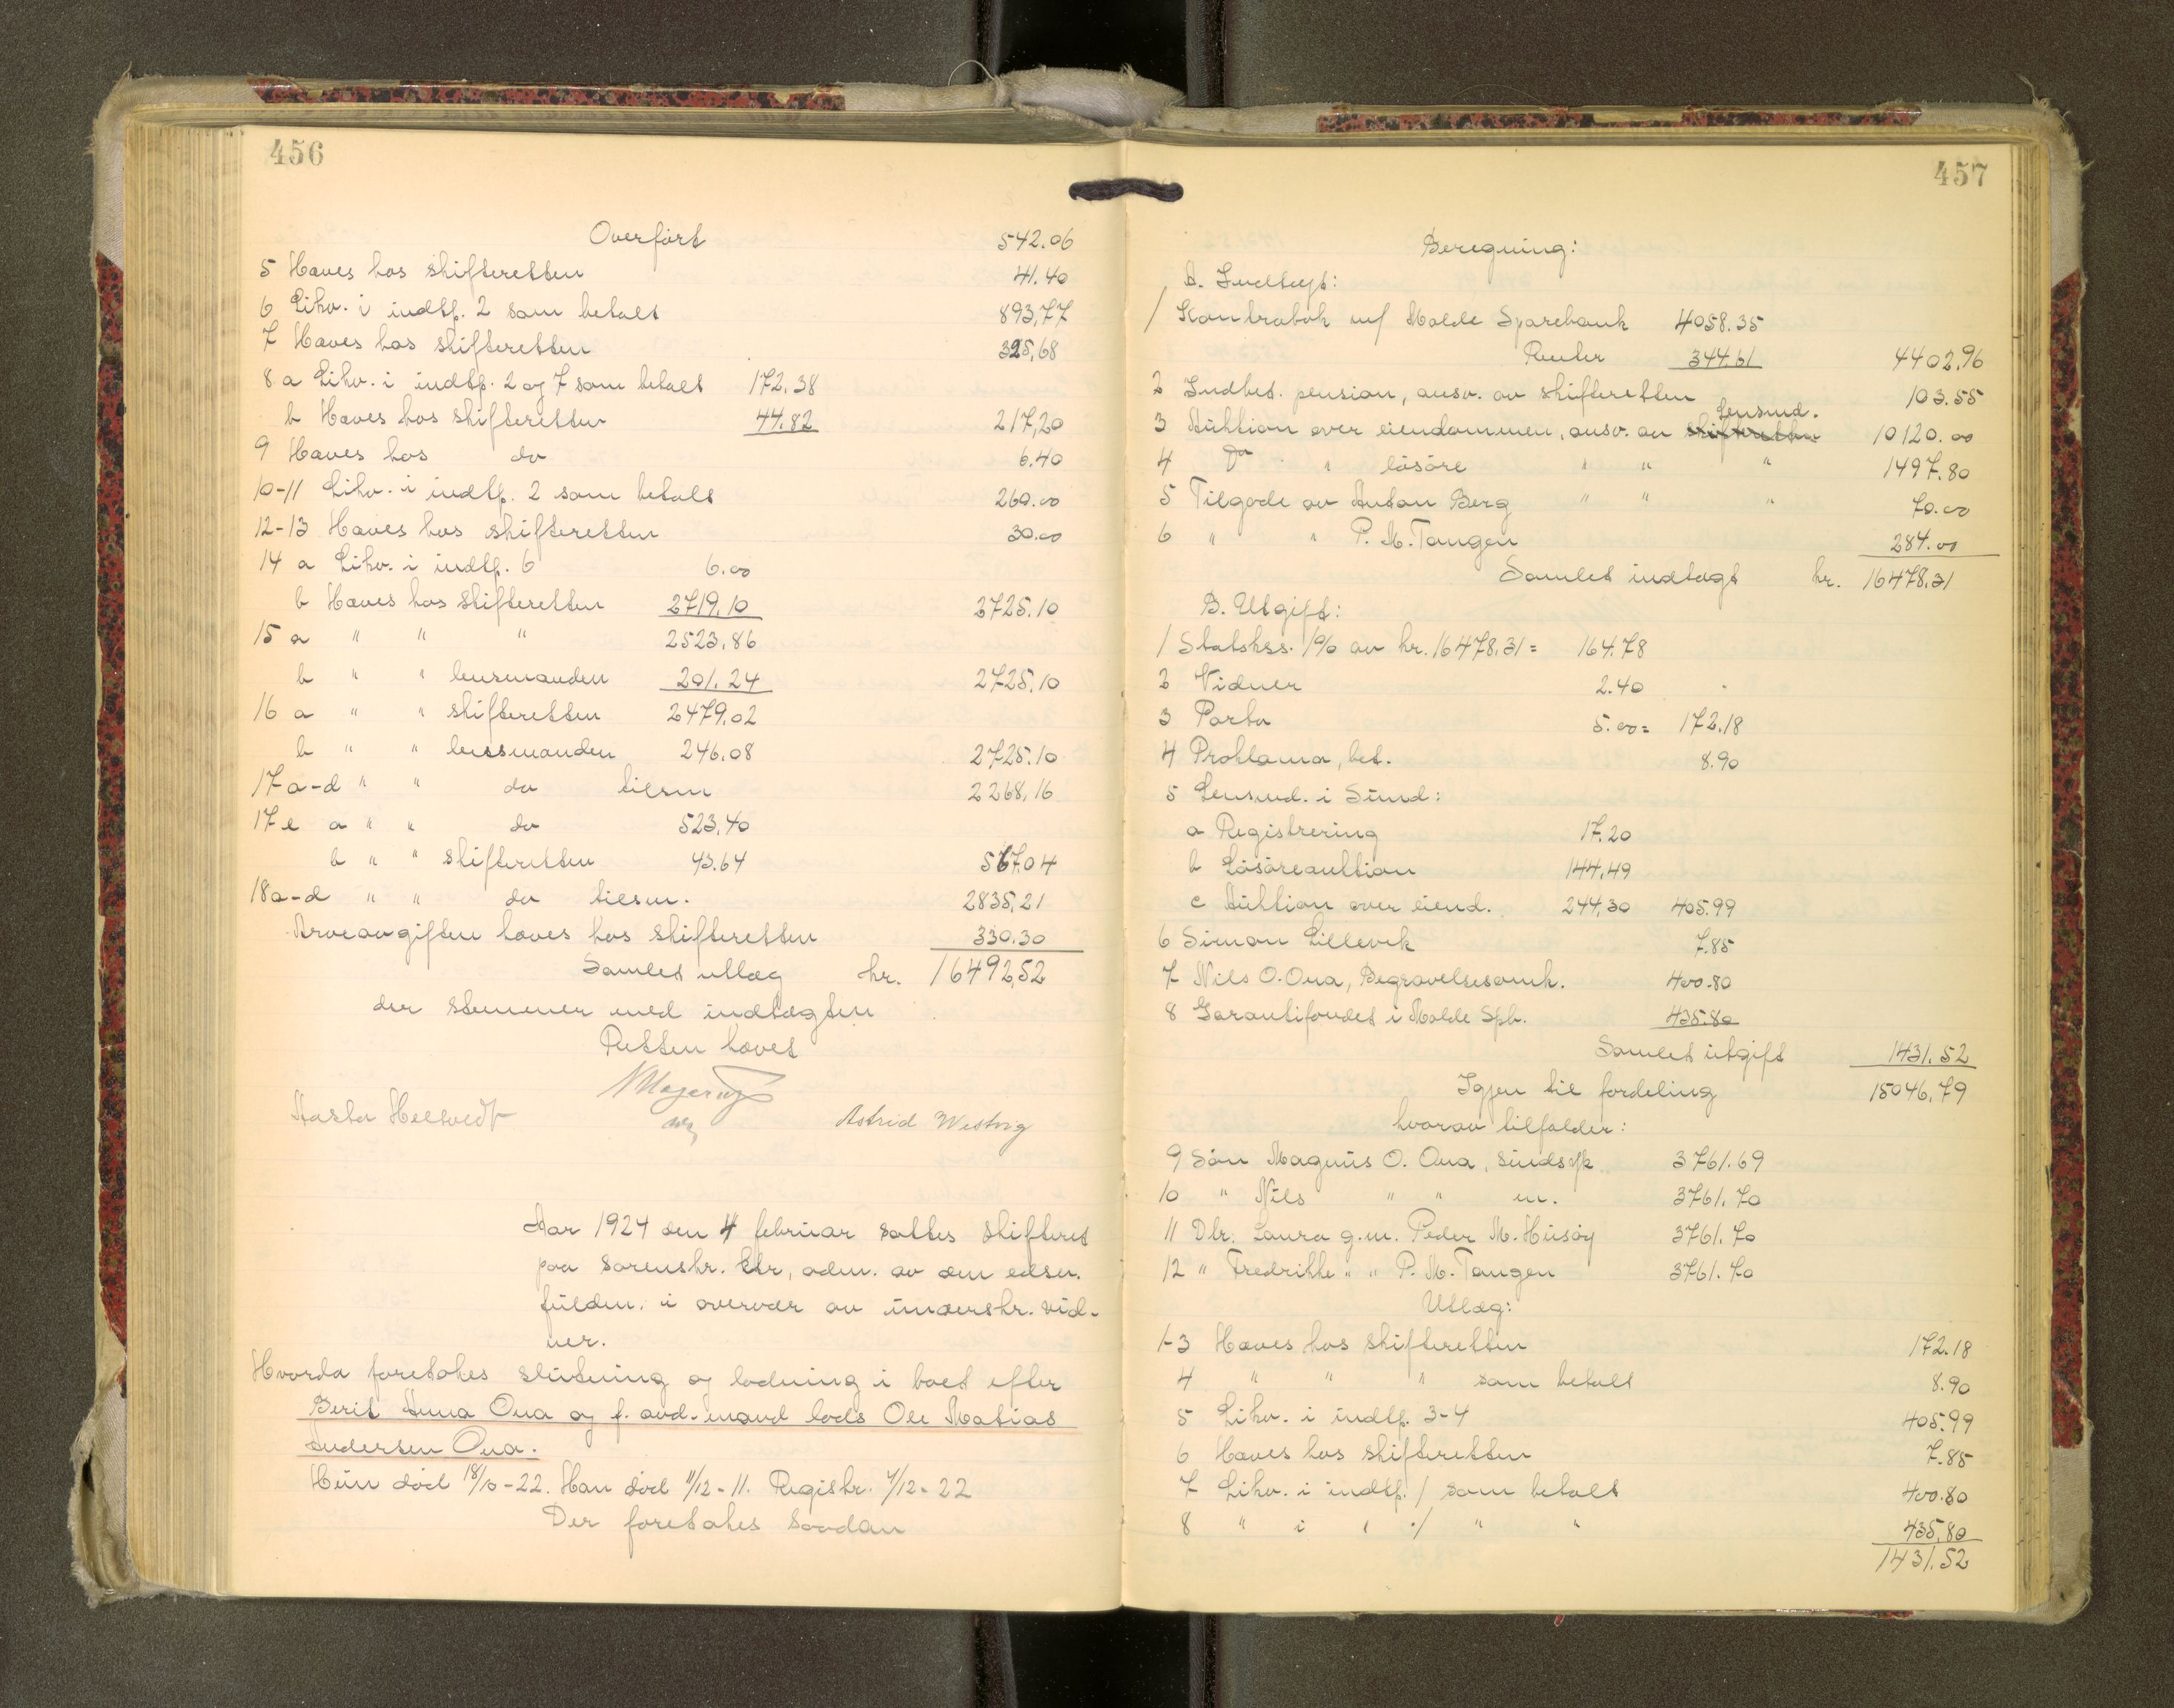 456
Overført 542.06
5 Haves hos skifteretten 41.40
6 Likv. i indtp. 2 som betalt 893,77
7 Haves hos skifteretten 325,68
8 a Likv. i indtp. 2 og 7 som betalt 172.38
b Haves hos skifteretten 44.82 217,20
9 Haves hos do 6.40
10-11 Likv. i indtp. 2 som betalt 260.00
12-13 Haves hos skifteretten 30.00
14 a Likv. i indtp. 6 6.00
b Haves hos skifteretten 2719.10 2725.10
15 a " " " 2523.86
b " " lensmanden 201.24 2725.10
16 a " " skifteretten 2479.02
b " " lensmanden 246.08 2725.10
17 a-d " " do tilsm 2268,16
17 e a " " do 523.40
b " " skifteretten 43.64 567.04
18 a-d " " do tilsm. 2835,21
Arveavgiften haves hos skifteretten 330.30
Samlet utlæg kr. 16492,52
der stemmer med indtægten
Retten hævet
Aasta Heltvedt Astrid Westvig
Aar 1924 den 4 februar sattes skifteret
paa sorenskr. ktr, adm. av den edsv.
fuldm. i overvær av underskr. vid-
ner.
Hvorda foretokes slutning og lodning i boet efter
Berit Anna Ona og f. avd. mand lods Ole Matias
Andersen Ona.
Hun död 18/10-22. Han död 11/12-11. Registr. 4/12-22
Der foretokes saadan
457
Beregning:
A. Indtægt:
1 Kontrabok m/ Molde Sparebank 4058.35
Renter 344.61 4402.96
2 Indbet. pension, ansv. av skifteretten 103.55
lensmd.
3 Auktion over eiendommen, ansv. av skifteretten 10120.00
4 Do " løsøre " " " 1497.80
5 Tilgode av Anton Berg " " " 70.00
6 " " P. M. Tangen 284.00
Samlet indtægt kr. 16478,31
B. Utgift:
1 Statskss. 1% av kr. 16478,31 = 164.78
2 Vidner 2.40
3 Porto 5.00 = 172.18
4 Proklama, bet. 8.90
5 Lensmd. i Sund:
a Registrering 17.20
b Løsøreauktion 144,49
c Auktion over eiend. 244,30 405.99
6 Simon Lillevik 7.85
7 Nils O. Ona, Begravelsesomk. 400.80
8 Garantifondet i Molde Spb. 435.80
Samlet utgift 1431.52
Igjen til fordeling 15046.79
hvorav tilfalder:
9 Sön Magnus O. Ona, sindssyk 3761.69
10 " Nils " " m. 3761.70
11 Dtr. Laura g.m. Peder M. Husöy 3761.70
12 " Fredrikke " " P. M. Tangen 3761.70
Utlæg:
1-3 Haves hos skifteretten 172.18
4 " " " som betalt 8.90
5 Likv. i indtp. 3-4 405.99
6 Haves hos skifteretten 7.85
7 Likv. i indtp. 1 som betalt 400.80
8 " i " 1 " " 435,80
1431.52